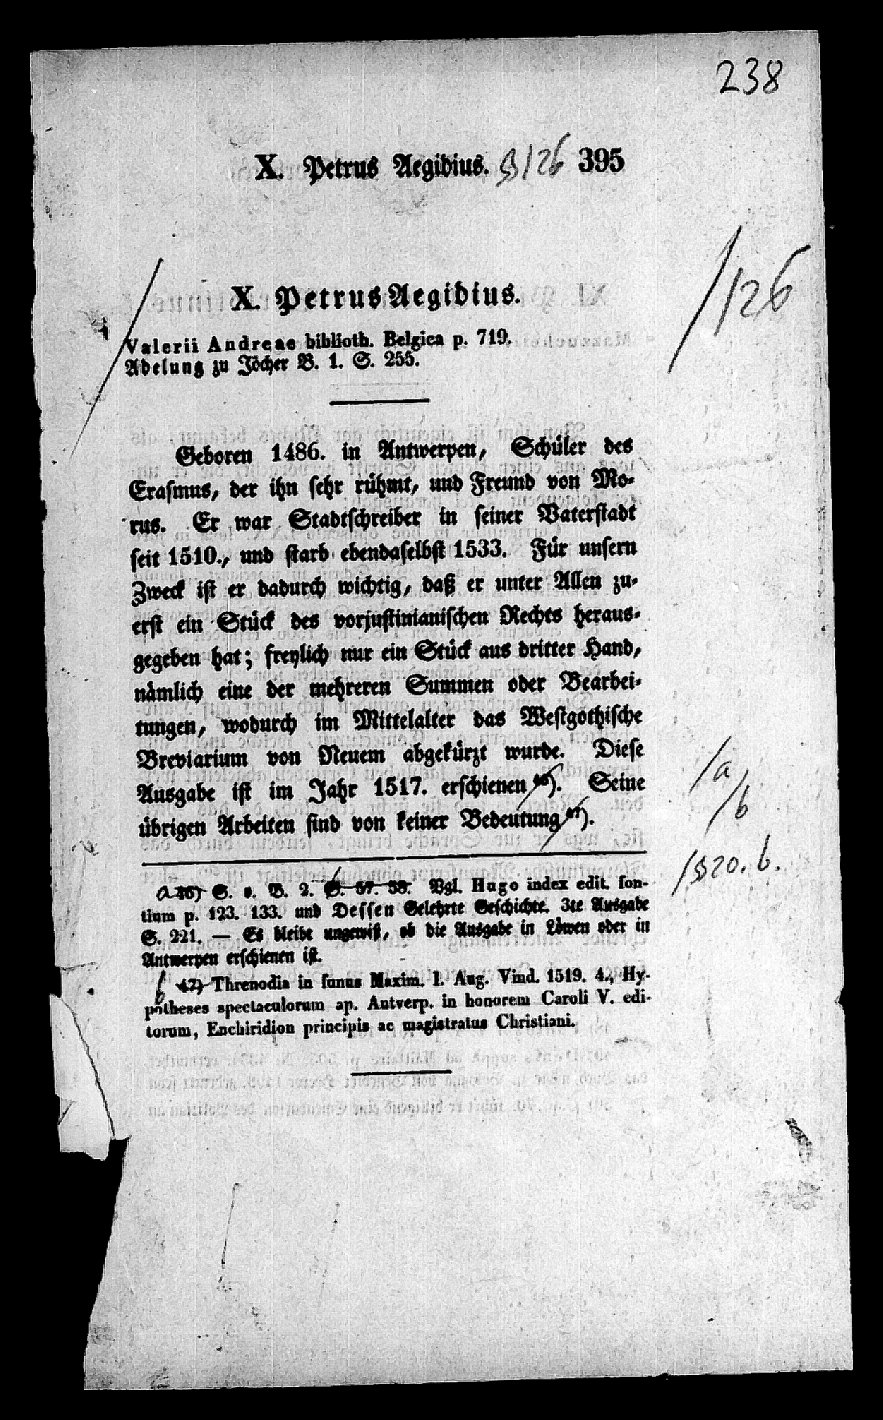 238
X. Petrus Aegidius. 126 395
126
X. Petrus Aegidius.
Valerii Andreae biblioth. Belgica p. 719.
Adelung zu Jöcher B. 1. S. 255.
Geboren 1486. in Antwerpen, Schüler des
Erasmus, der ihn sehr rühmt, und Freund von Mo-
rus. Er war Stadtschreiber in seiner Vaterstadt
seit 1510., und starb ebendaselbst 1533. Für unsern
Zweck ist er dadurch wichtig, daß er unter Allen zu-
erst ein Stück des vorjustinianischen Rechts heraus-
gegeben hat; freylich nur ein Stück aus dritter Hand,
nämlich eine der mehreren Summen oder Bearbei-
tungen, wodurch im Mittelalter das Westgothische
Breviarium von Neuem abgekürzt wurde. Diese
Ausgabe ist im Jahr 1517. erschienen 46). Seine /a
übrigen Arbeiten sind von keiner Bedeutung 47). /b
a 46) S. o. B. 2. S. 57. 58. Vgl. Hugo index edit. fon- /§20. b.
tium p. 123. 133. und Dessen Gelehrte Geschichte. 3te Ausgabe
S. 221. — Es bleibt ungewiß, ob die Ausgabe in Löwen oder in
Antwerpen erschienen ist.
b 47) Threnodia in funus Maxim. I. Aug. Vind. 1519. 4., Hy-
potheses spectaculorum ap. Antverp. in honorem Caroli V. edi-
torum, Enchiridion principis ac magistratus Christiani.